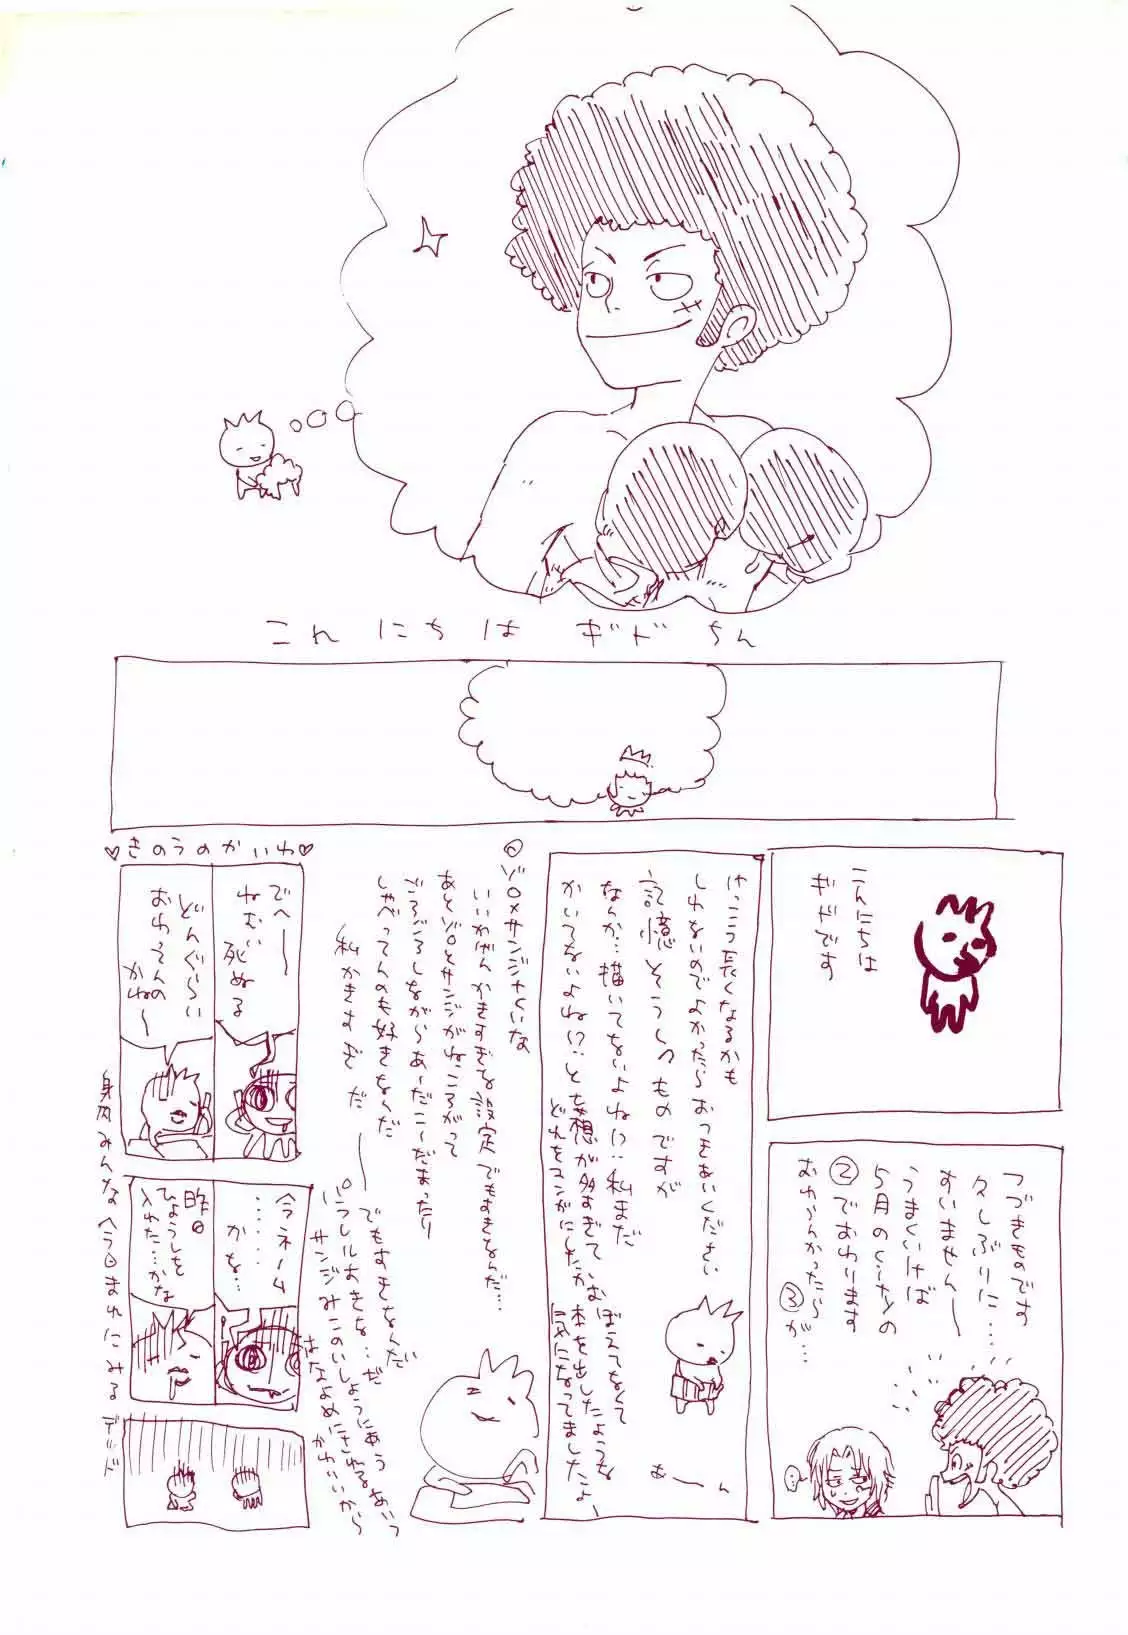 こんにちは ギドちん
こんにちは
ギドです
つづきものです
久しぶりに…
すいません〜
うまくいけば
5月のくらたの
②でおわります
おわらんかったら
③が…
けっこう長くなるかも
しれないのでよかったらおつきあいください
記憶そうしつものですが
なんか…描いてないよね!?…私まだ
かいてないよね!?…と妄想が多すぎて
どれをマンガにしたかおぼえてなくて
本を出したような
気になってましたよ、
あーん
ゾロ×サンジくいな
いいかげんかきすぎな設定でもすきなんだ…
あとゾロとサンジがねころがって
ごろごろしながらあーだこーだまったり
しゃべってんのも好きなんだ
私かきすぎだ——
でもすきなんだ
パラレルおきな…だ
サンジみこのいしょうにあう
はなよめにされるあいつ
かわいいから
♡きのうのかいわ♡
でへ〜
ねむい
死ぬる
どんぐらい
おわってんの
かね〜
今ネーム
……
かな…
昨日
ひょうしを
入れた…かな
身内みんな今日まれにみるデッド